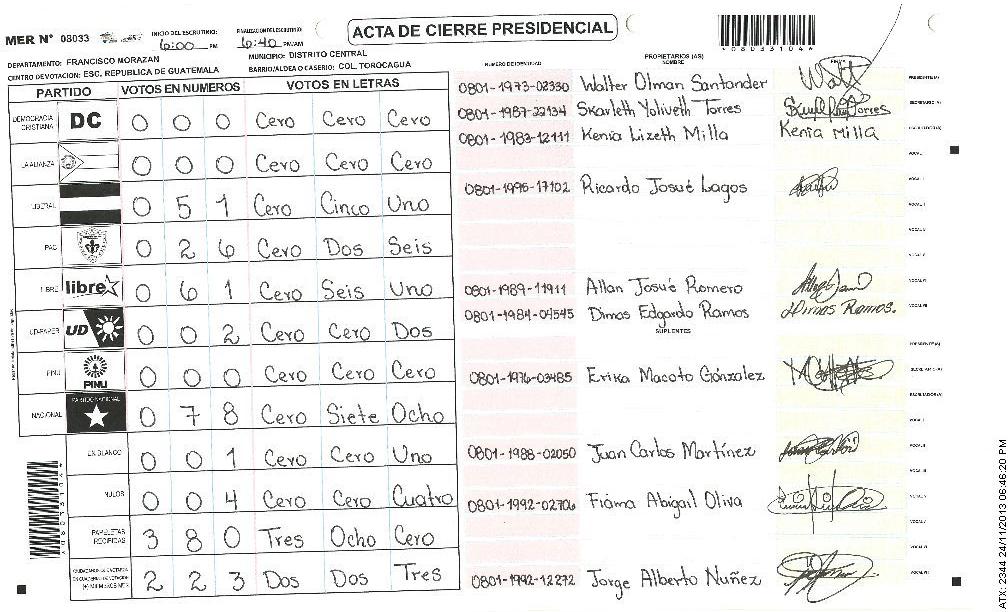 ACTA DE CIERRE PRESIDENCIAL
MER N° 08033
INICIO DEL ESCRUTINIO: 6:00 PM
FINALIZACION DEL ESCRUTINIO: 6:40 PM/AM
*08033104*
DEPARTAMENTO: FRANCISCO MORAZAN
MUNICIPIO: DISTRITO CENTRAL
CENTRO DE VOTACION: ESC. REPUBLICA DE GUATEMALA
BARRIO/ALDEA O CASERIO: COL. TOROCAGUA
PARTIDO VOTOS EN NUMEROS VOTOS EN LETRAS
DEMOCRACIA CRISTIANA DC 0 0 0 Cero Cero Cero
LA ALIANZA 0 0 0 Cero Cero Cero
LIBERAL 0 5 1 Cero Cinco Uno
PAC 0 2 6 Cero Dos Seis
LIBRE libre 0 6 1 Cero Seis Uno
UD-FAPER UD 0 0 2 Cero Cero Dos
PINU PINU 0 0 0 Cero Cero Cero
NACIONAL PARTIDO NACIONAL 0 7 8 Cero Siete Ocho
EN BLANCO 0 0 1 Cero Cero Uno
NULOS 0 0 4 Cero Cero Cuatro
PAPELETAS RECIBIDAS 3 8 0 Tres Ocho Cero
2 2 3 Dos Dos Tres
NUMERO DE IDENTIDAD
PROPIETARIOS (AS)
NOMBRE
FIRMA
0801-1973-02330 Walter Olman Santander PRESIDENTE(A)
0801-1987-22134 Skarleth Yoliveth Torres SECRETARIO(A)
0801-1983-12111 Kenia Lizeth Milla Kenia Milla ESCRUTADOR(A)
VOCAL I
0801-1995-17102 Ricardo Josué Lagos VOCAL II
VOCAL III
VOCAL IV
VOCAL V
0801-1989-11911 Allan Josué Romero VOCAL VI
0801-1984-04545 Dimas Edgardo Ramos Dimas Ramos. VOCAL VII
SUPLENTES
PRESIDENTE(A)
0801-1976-03485 Erika Macoto Gónzalez SECRETARIO(A)
ESCRUTADOR(A)
VOCAL I
0801-1988-02050 Juan Carlos Martínez VOCAL II
VOCAL III
0801-1992-02706 Fiama Abigail Oliva VOCAL IV
VOCAL V
VOCAL VI
0801-1992-12272 Jorge Alberto Nuñez VOCAL VII
ATX-2344 24/11/2013 06:46:20 PM